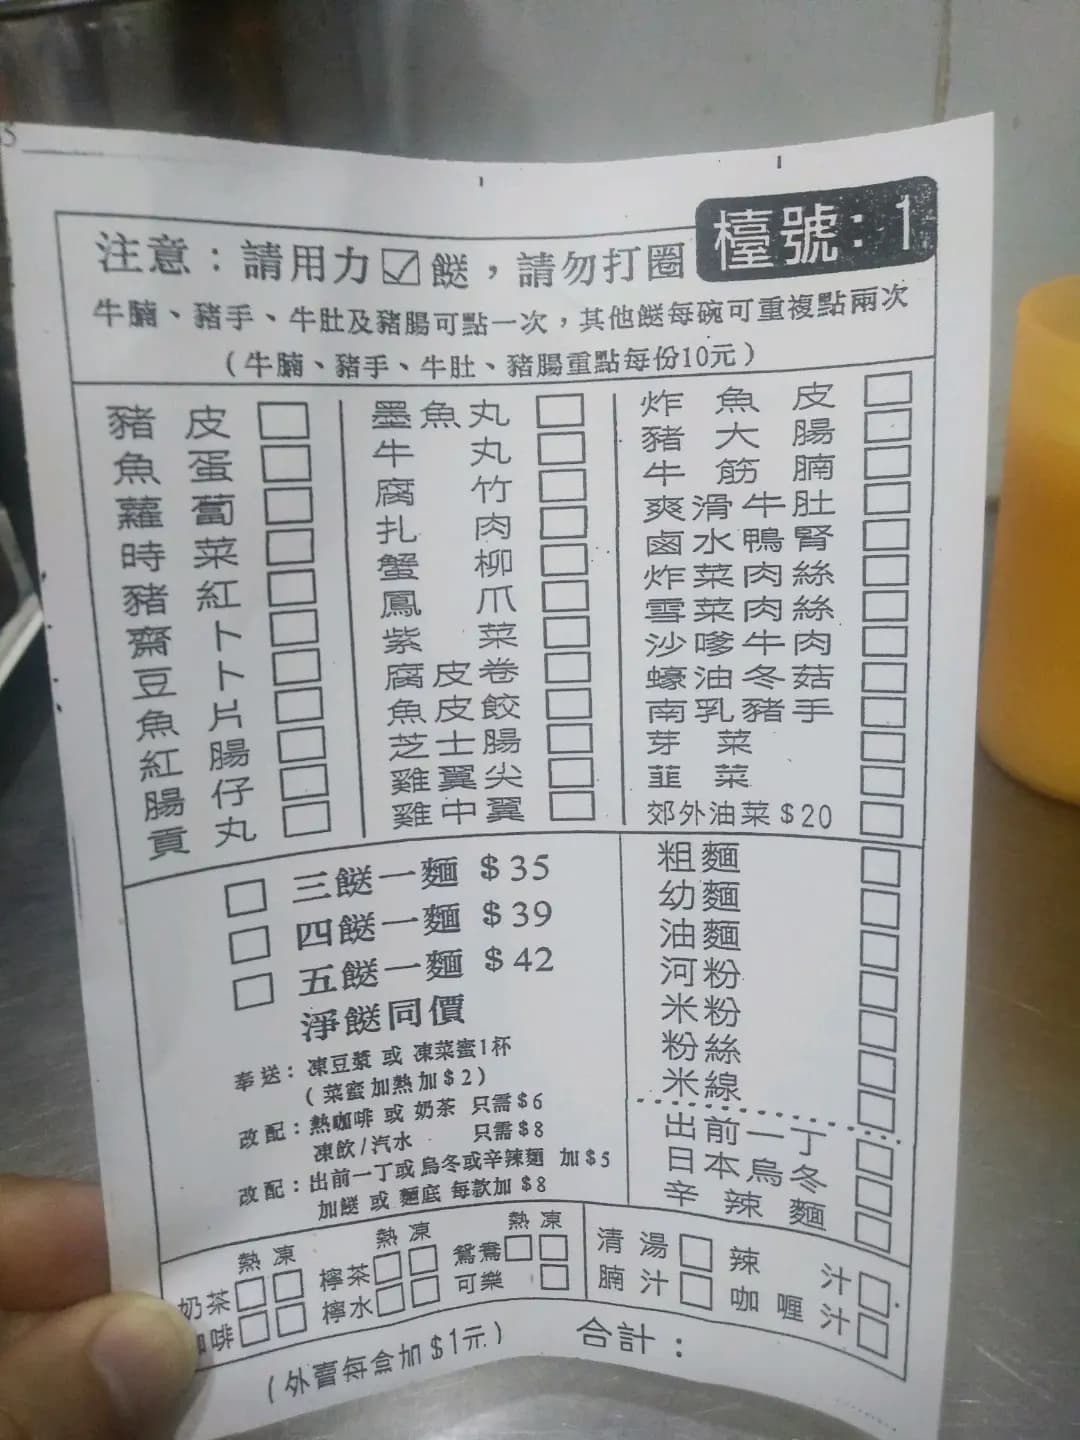 檯號：1
注意：請用力☑餸，請勿打圈
牛腩、豬手、牛肚及豬腸可點一次，其他餸每碗可重複點兩次
（牛腩、豬手、牛肚、豬腸重點每份10元）
豬皮
魚蛋
蘿蔔
時菜
豬紅
齋卜
豆卜
魚片
紅腸
腸仔
貢丸
墨魚丸
牛丸
腐竹
扎肉
蟹柳
鳳爪
紫菜
腐皮卷
魚皮餃
芝士腸
雞翼尖
雞中翼
炸魚皮
豬大腸
牛筋腩
爽滑牛肚
鹵水鴨腎
炸菜肉絲
雪菜肉絲
沙嗲牛肉
蠔油冬菇
南乳豬手
芽菜
韮菜
郊外油菜$20
三餸一麵 $35
四餸一麵 $39
五餸一麵 $42
淨餸同價
奉送：凍豆漿 或 凍菜蜜1杯
（菜蜜加熱加$2）
改配：熱咖啡 或 奶茶 只需$6
凍飲/汽水 只需$8
改配：出前一丁或烏冬或辛辣麵 加$5
加餸 或 麵底 每款加$8
粗麵
幼麵
油麵
河粉
米粉
粉絲
米線
出前一丁
日本烏冬
辛辣麵
熱 凍 熱 凍 熱 凍
奶茶 檸茶 鴛鴦
咖啡 檸水 可樂
清湯 辣汁
腩汁 咖喱汁
（外賣每盒加$1元） 合計：